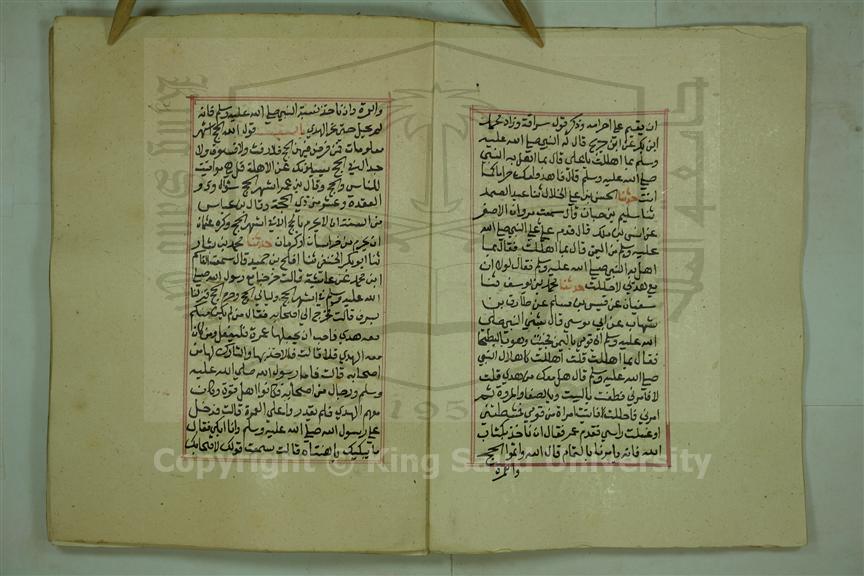 ان يقيم على احرامه وذكر قول سراقة وزاد محمد
ابن بكر عن ابن جريج قال له النبي صلى الله عليه
وسلم بما اهللت يا علي قال بما اهل به النبي
صلى الله عليه وسلم قال فاهد وامكث حراما كما
انت حدثنا الحسن بن علي الخلال ثنا عبد الصمد
ثنا سليم بن حيان قال سمعت مروان الاصفر
عن انس بن ملك قال قدم علي على النبي صلى الله
عليه وسلم من اليمن فقال بما اهللت فقال بما
اهل به النبي صلى الله عليه وسلم فقال لولا ان
مع هدي لاحللت حدثنا محمد بن يوسف ثنا
سفيان عن قيس بن مسلم عن طارق بن
شهاب عن ابي موسى قال بعثني النبي صلى
الله عليه وسلم الى قومي باليمن فجئت وهو بالبطحا
فقال بما اهللت قلت اهللت كاهلال النبي
صلى الله عليه وسلم قال هل معك من هدي قلت
لا فامرني فطفت بالبيت وبالصفا والمروة ثم
امرني فاحللت فاتيت امراة من قومي فمشطتني
او غسلت راسي فقدم عمر فقال ان ناخذ بكتاب
الله فانه يامرنا بالتمام قال الله واتموا الحج
والعمرة
والعمرة وان ناخذ بسنة النبي صلى الله عليه وسلم فانه
لم يحل حتى نحر الهدي باب قول الله الحج اشهر
معلومات فمن فرض فيهن الحج فلا رفث ولا فسوق ولا
جدال في الحج يسيلونك عن الاهلة قل هي مواقيت
للناس والحج وقال بن عمر اشهر الحج شوال وذو
القعدة وعشر من ذي الحجة وقال بن عباس
من السنة ان لا يحرم بالحج الا في اشهر الحج وكره عثمان
ان يحرم من خراسان او كرمان حدثنا محمد بن بشار
ثنا ابو بكر الحنفي ثنا افلح بن حميد قال سمعت القاسم
ابن محمد عن عايشة قالت خرجنا مع رسول الله صلى
الله عليه وسلم في اشهر الحج وليالي الحج وحرم الحج فنزلنا
بسرف قالت فخرج الى اصحابه فقال من لم يكن منكم
معه هدي فاحب ان يجعلها عمرة فليفعل ومن كان
معه الهدي فلا قالت فالاخذ بها والتارك لها من
اصحابه قالت فاما رسول الله صلى الله عليه
وسلم ورجال من اصحابه فكانوا اهل قوة وكان
معهم الهدي فلم يقدروا على العمرة قالت فدخل
علي رسول الله صلى الله عليه وسلم وانا ابكي فقال
ما يبكيك يا هنتاه قالت سمعت قولك لاصحابك
Copyright © King Saud University
195